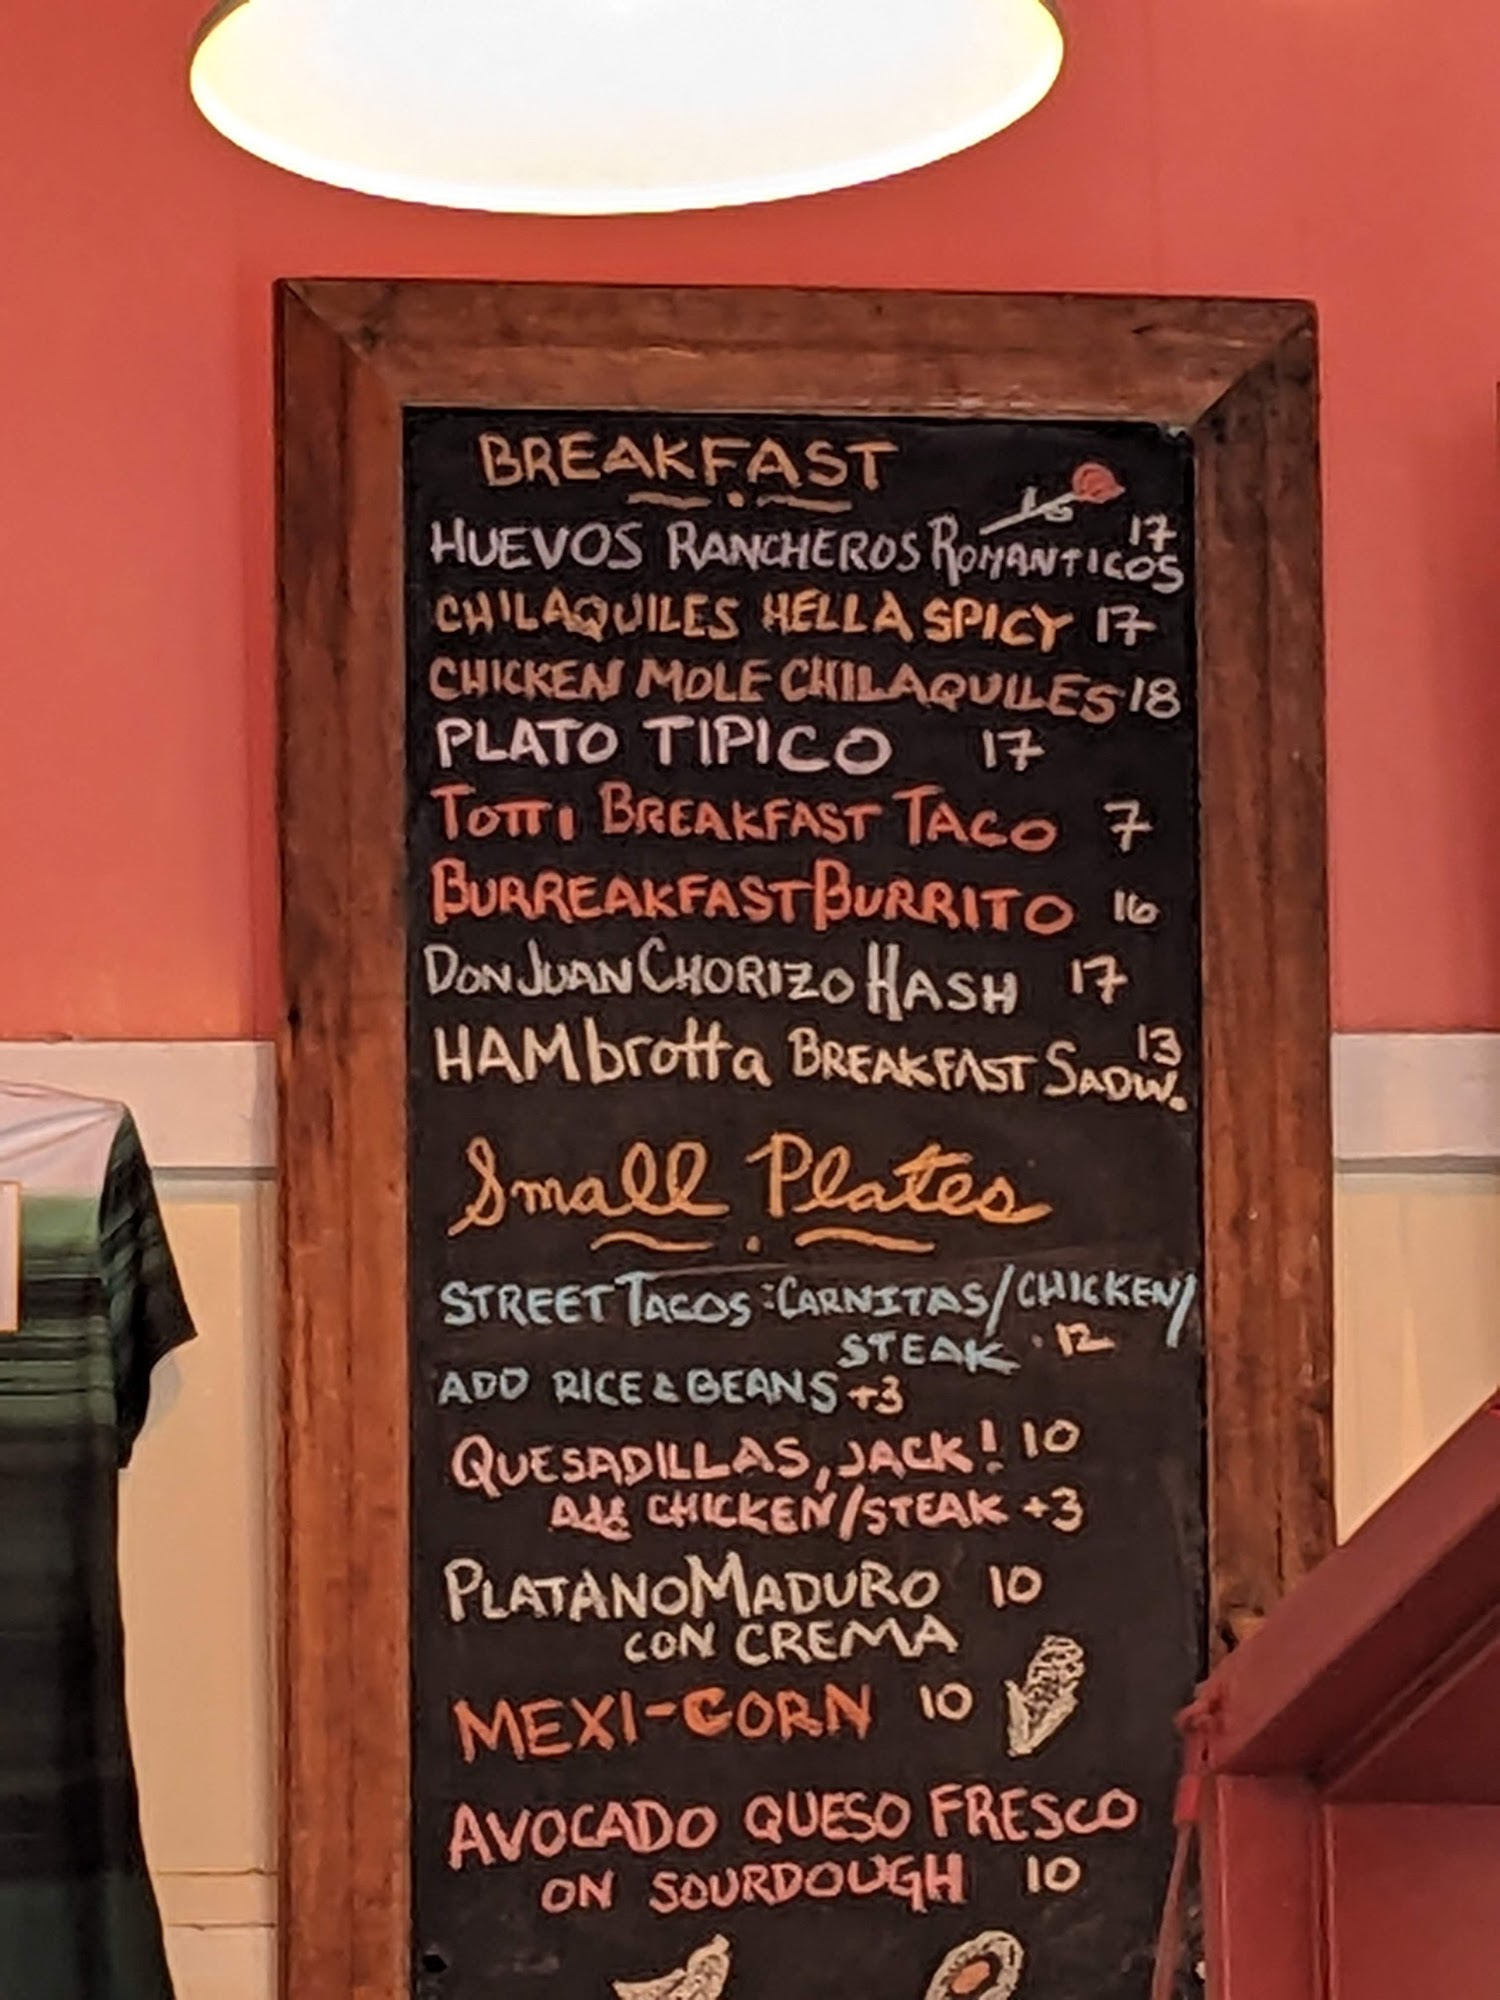 BREAKFAST
HUEVOS RANCHEROS ROMANTICOS 17
CHILAQUILES HELLA SPICY 17
CHICKEN MOLE CHILAQUILES 18
PLATO TIPICO 17
TOTTI BREAKFAST TACO 7
BURREAKFAST BURRITO 16
DON JUAN CHORIZO HASH 17
HAMbrotta BREAKFAST SADW. 13
Small Plates
STREET TACOS: CARNITAS/CHICKEN/
STEAK 12
ADD RICE & BEANS +3
QUESADILLAS, JACK! 10
Add CHICKEN/STEAK +3
PLATANO MADURO 10
CON CREMA
MEXI-CORN 10
AVOCADO QUESO FRESCO
ON SOURDOUGH 10